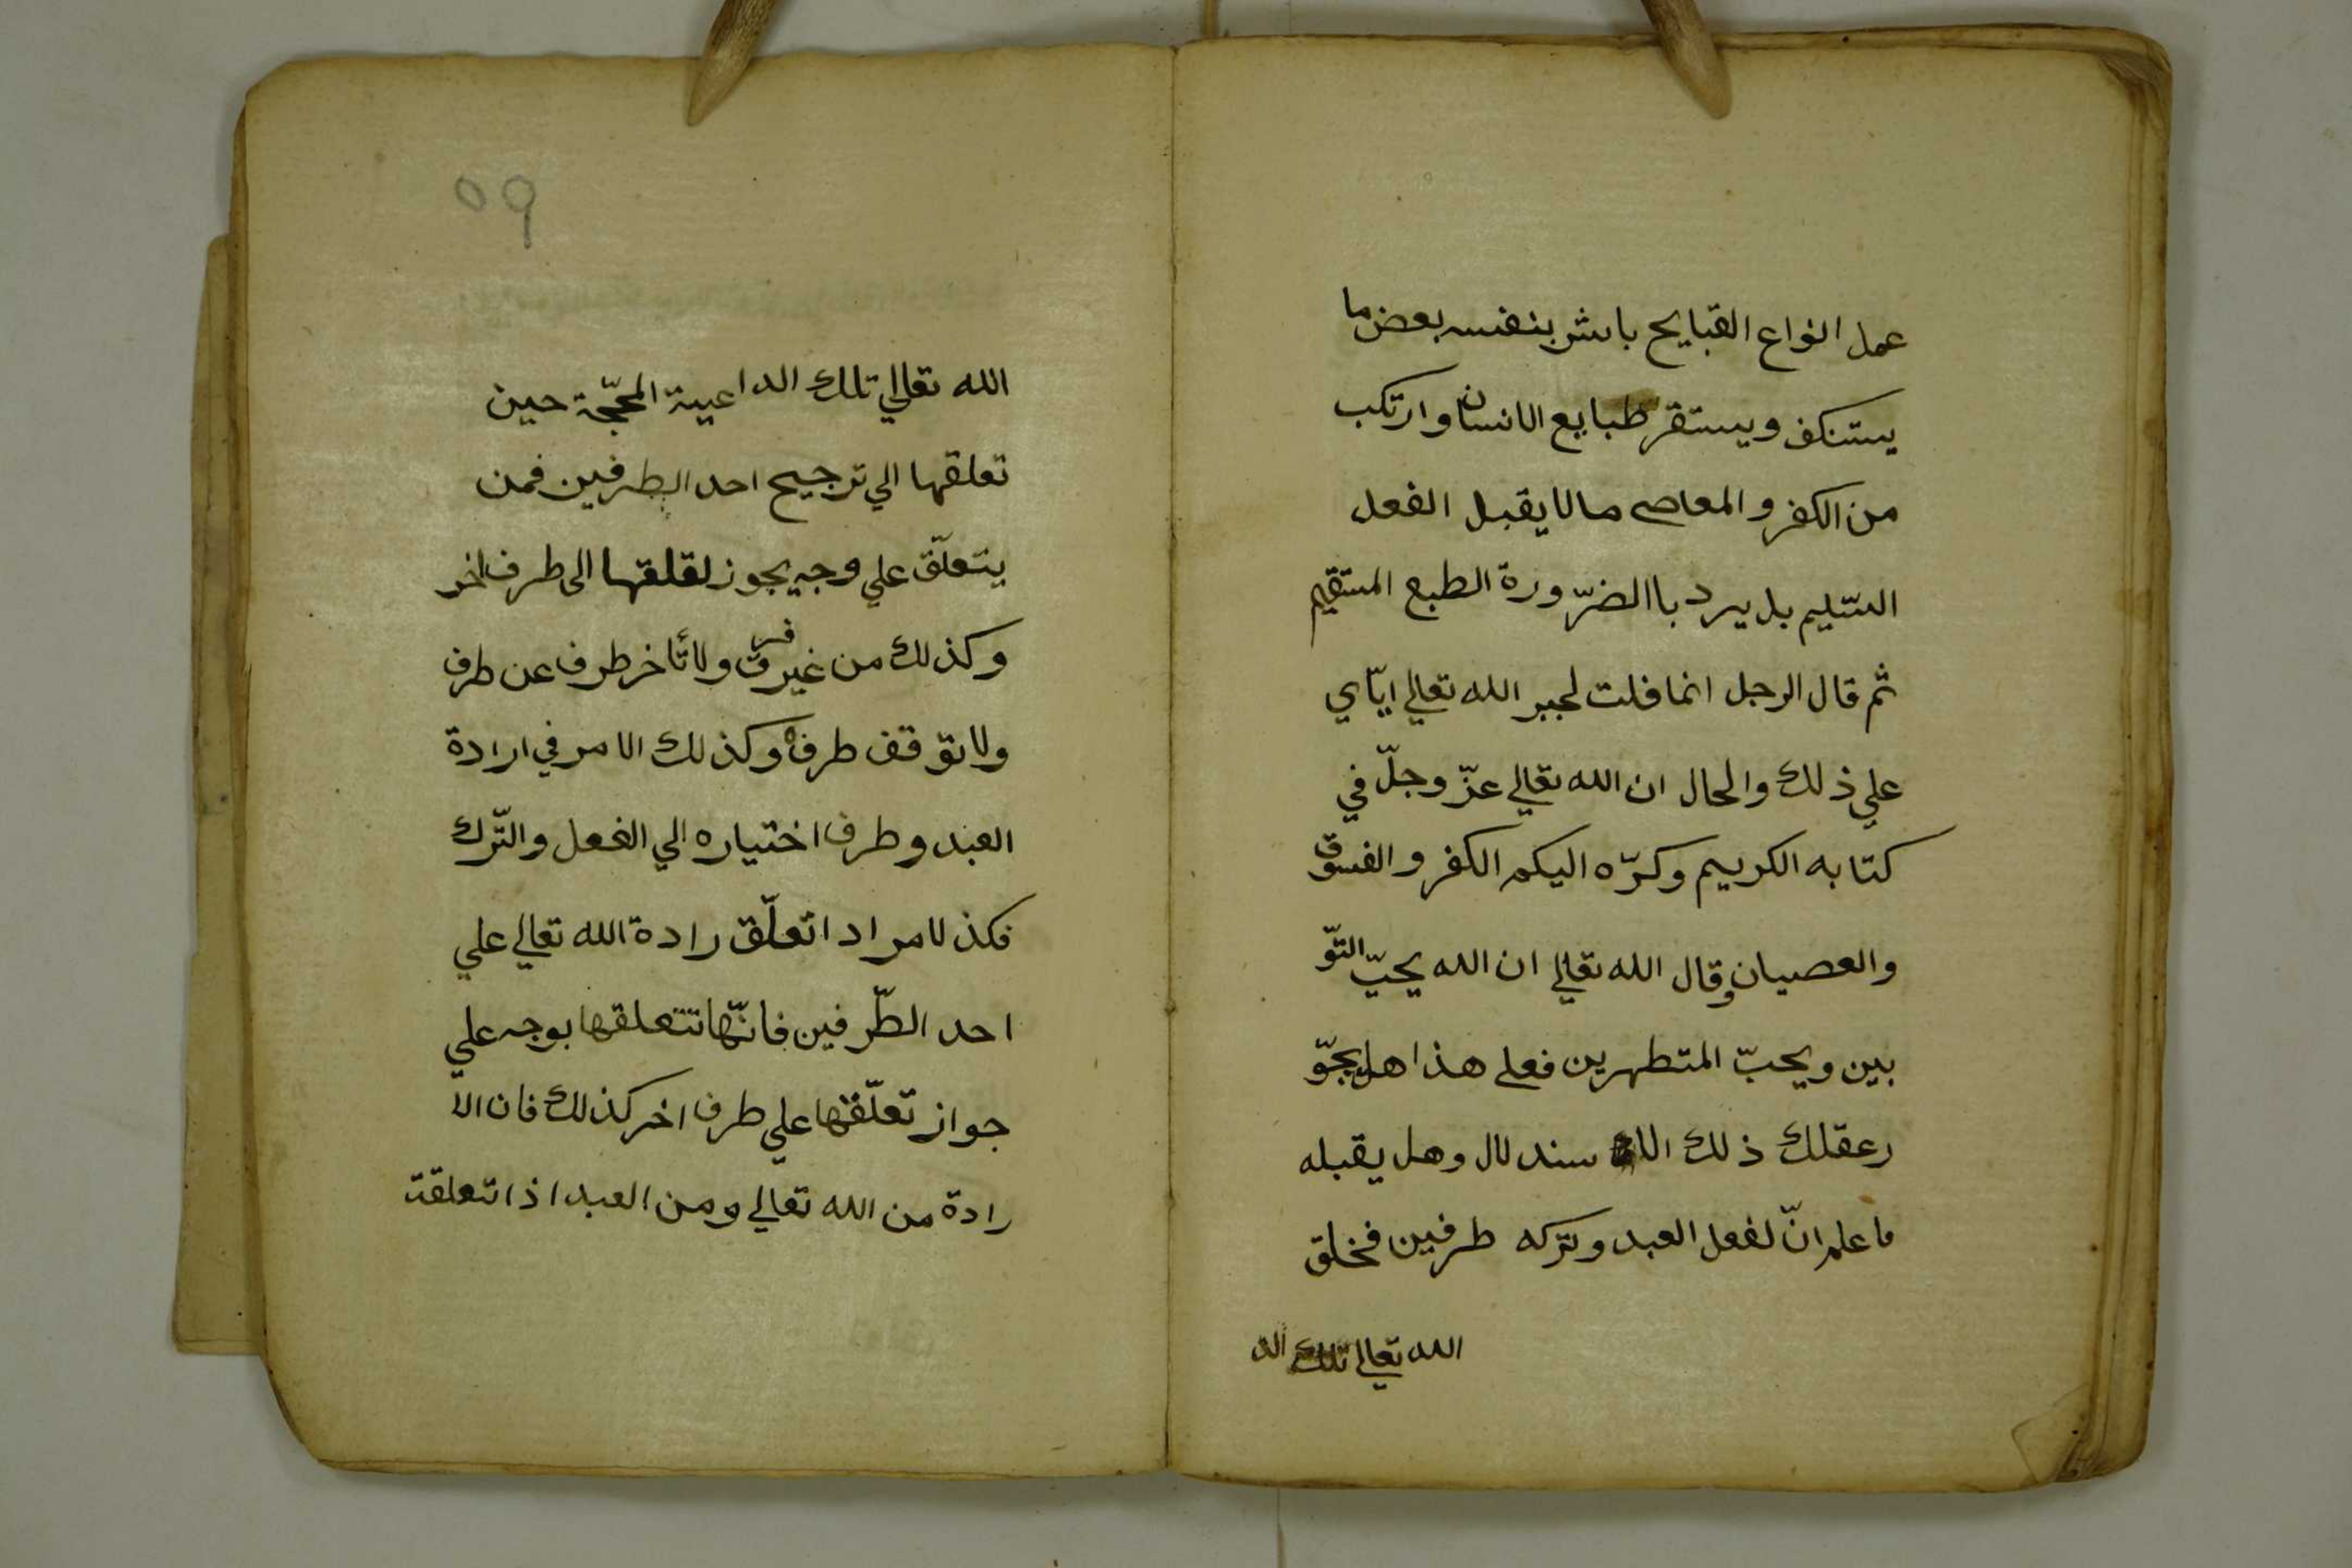 عمل انواع القبايح باشر بنفسه بعض ما
يستنكف ويستقر طبايع الانسان وارتكب
من الكفر والمعاصى مالا يقبل الفعل
السّليم بل يرد باالضرّورة الطبع المستقيم
ثم قال الرجل انما فلت لجبر الله تعالي ايّاي
علي ذلك والحال ان الله تعالي عزّ وجلّ في
كتابه الكريم وكرّه اليكم الكفر والفسوق
والعصيان وقال الله تعالي ان الله يحبّ التوّ
بين ويحبّ المتطهرين فعلى هذا هل يجوّ
رعقلك ذلك الا سند لال وهل يقبله
ما علم انّ لفعل العبد وتركه طرفين فخلق
الله تعالي تلك الد
٥٩
الله تعالي تلك الداعية المحجّة حين
تعلقها الي ترجيح احد الطرفين فمن
يتعلّق علي وجه يجوز لقلقها الى طرف اخر
وكذلك من غير فرق ولا تأخر طرف عن طرف
ولا توقف طرف وكذلك الامر في ارادة
العبد وطرف اختياره الي الفعل والتّرك
فكذ لامر اد اتعلّق رادة الله تعالي علي
احد الطّرفين فانّها تتعلقها بوجه علي
جواز تعلّقها علي طرف اخر كذلك فان الا
رادة من الله تعالي ومن العبد اذا تعلقة